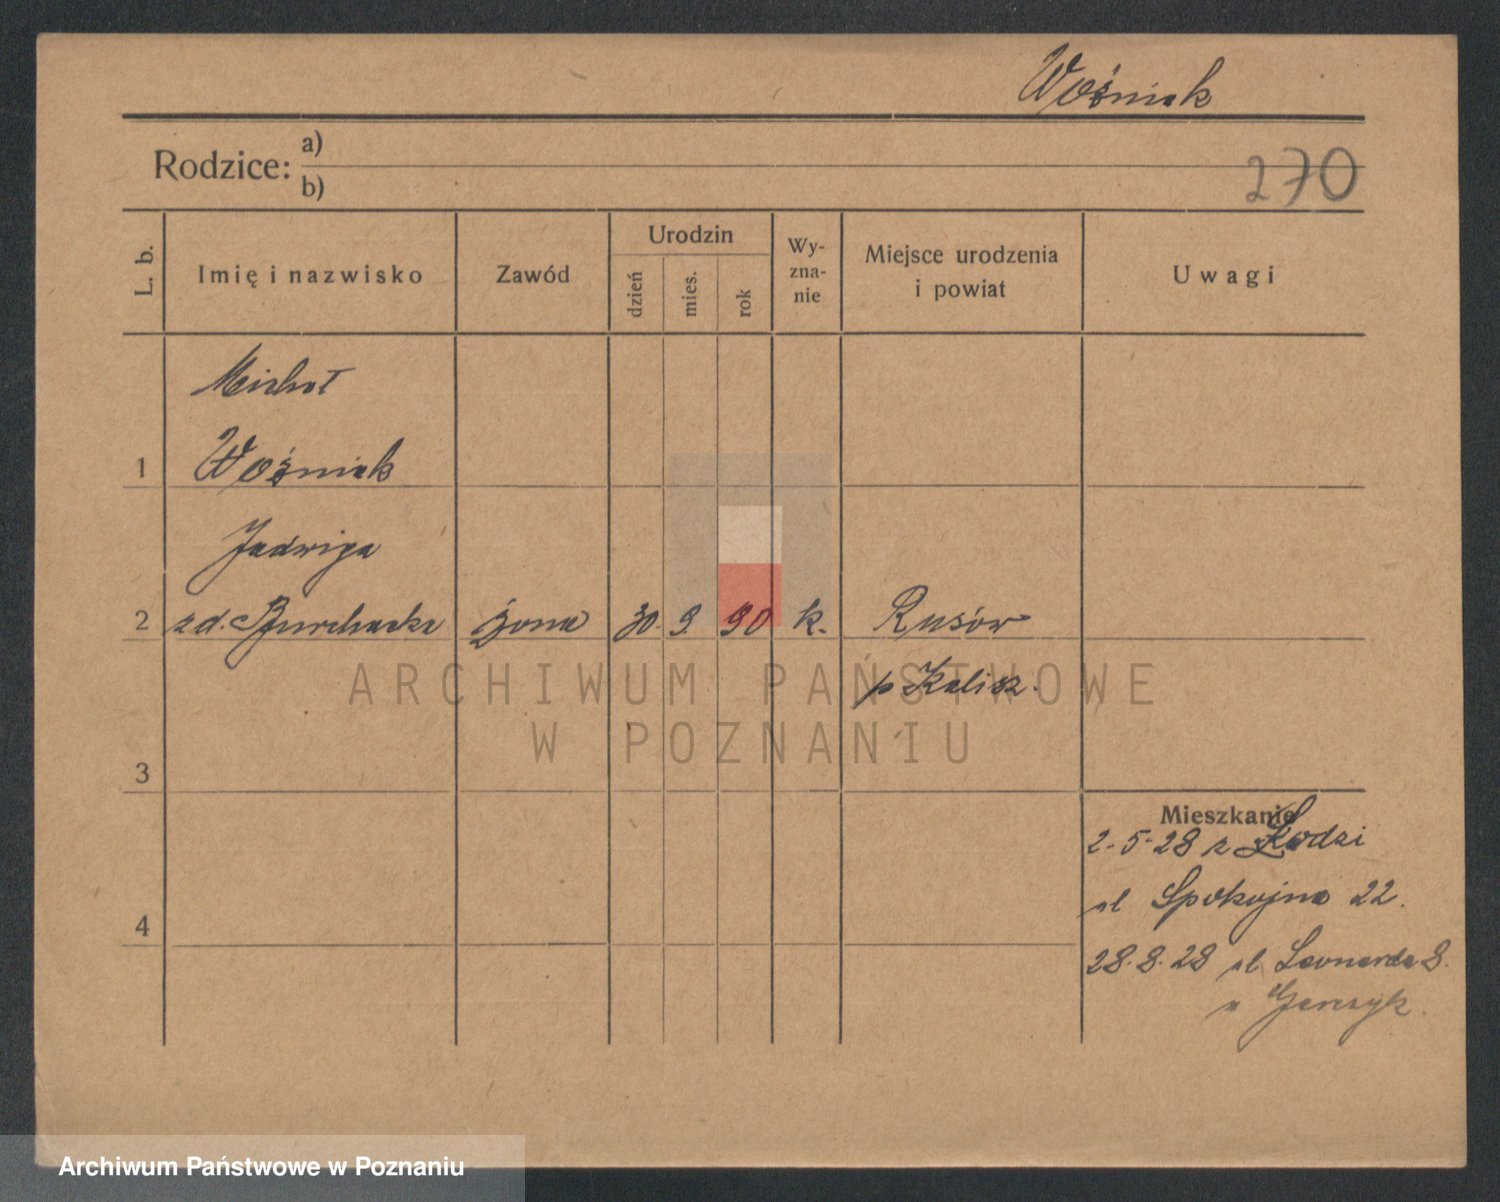 Woźniak
Rodzice: a)
b)
270
L. b.
Imię i nazwisko
Zawód
Urodzin
dzień
mies.
rok
Wy-
zna-
nie
Miejsce urodzenia
i powiat
Uwagi
Michał
1 Woźniak
Jadwiga
2 zd. żona 30. 9. 90 k. Rusów
p Kalisz.
ARCHIWUM PAŃSTWOWE
W POZNANIU
3
Mieszkanie
2-5-28 z Łodzi
ul Spokojna 22.
4
28.8.28 ul Leonarda 8.
u
Archiwum Państwowe w Poznaniu